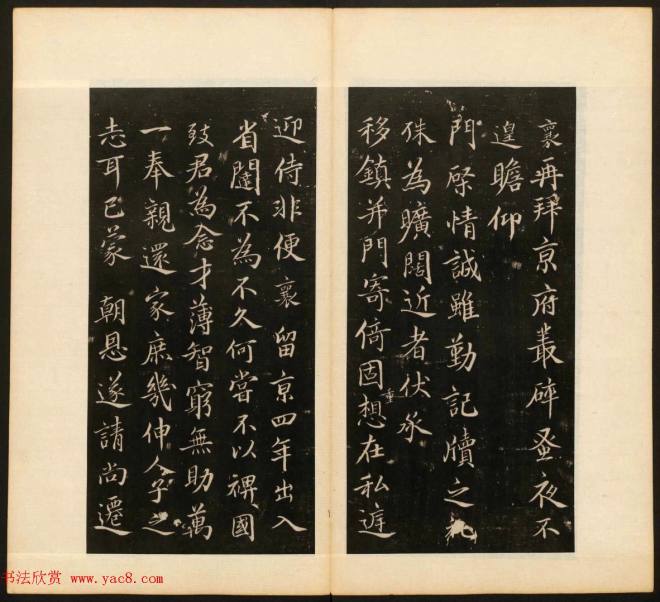 襄再拜京府叢碎蚤夜不
遑瞻仰
門屏情誠雖勤記牘之礼
殊為曠闊近者伏承
移鎮并門寄倚固重想在私遽
迎侍非便襄留京四年出入
省闥不為不久何嘗不以裨國
致君為念才薄智窮無助萬
一奉親還家庶幾伸人子之
志耳已蒙 朝恩遂請尚遷
书法欣赏 www.yac8.com